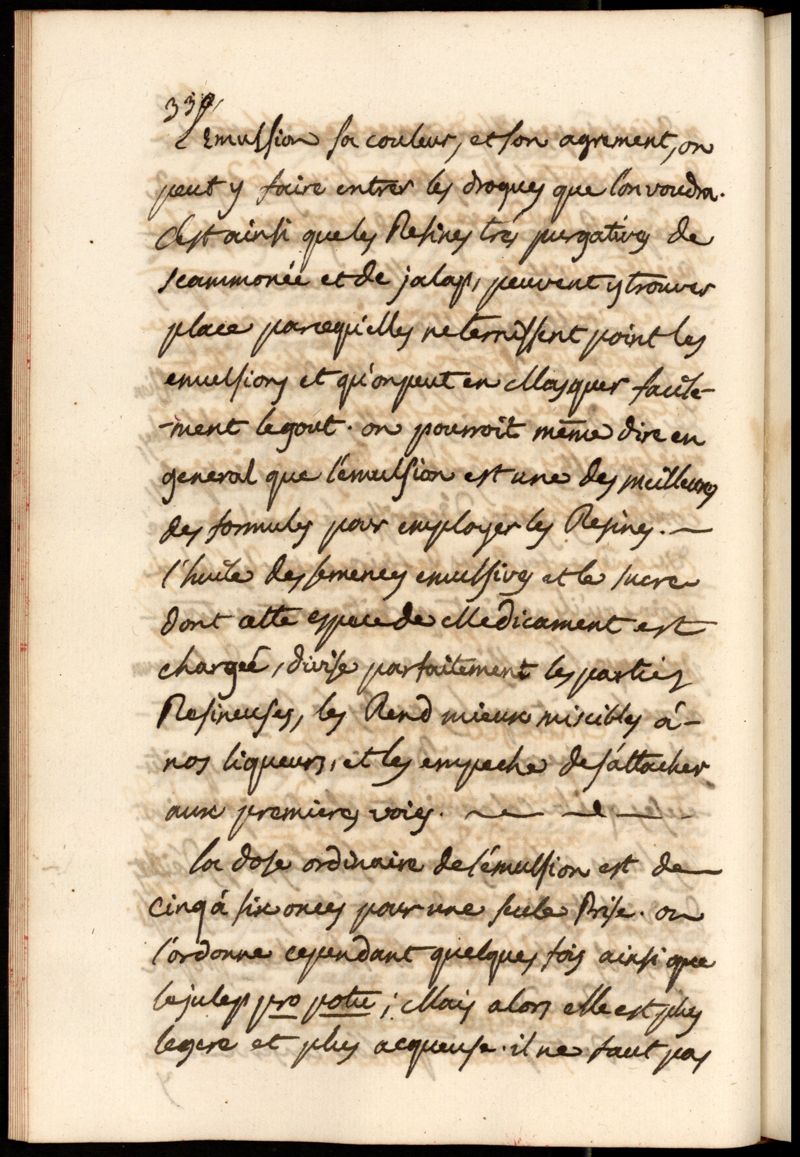 330
l'Emulsion sa couleur, et son agrement, on
peut y faire entrer les drogues que l'on voudra.
C'est ainsi que les Resines trés purgatives de
scammonée et de jalap, peuvent y trouver
place parcequ'elles ne ternissent point les
emulsions et qu'on peut en Masquer facile-
-ment le gout. on pourroit même dire en
general que l'émulsion est une des meilleures
des formules pour employer les Resines. —
l'huile des semences emulsives et le sucre
dont cette espece de Medicament est
chargeé, divise parfaitement les parties
Resineuses, les Rend mieux miscibles á-
nos liqueurs, et les empeche de s'attacher
aux premieres voies.
la dose ordinaire de l'émulsion est de
cinq á six onces pour une seule Prise. on
l'ordonne cependant quelques fois ainsi que
le julep pro potu ; Mais alors elle est plus
legere et plus acqueuse. il ne faut pas